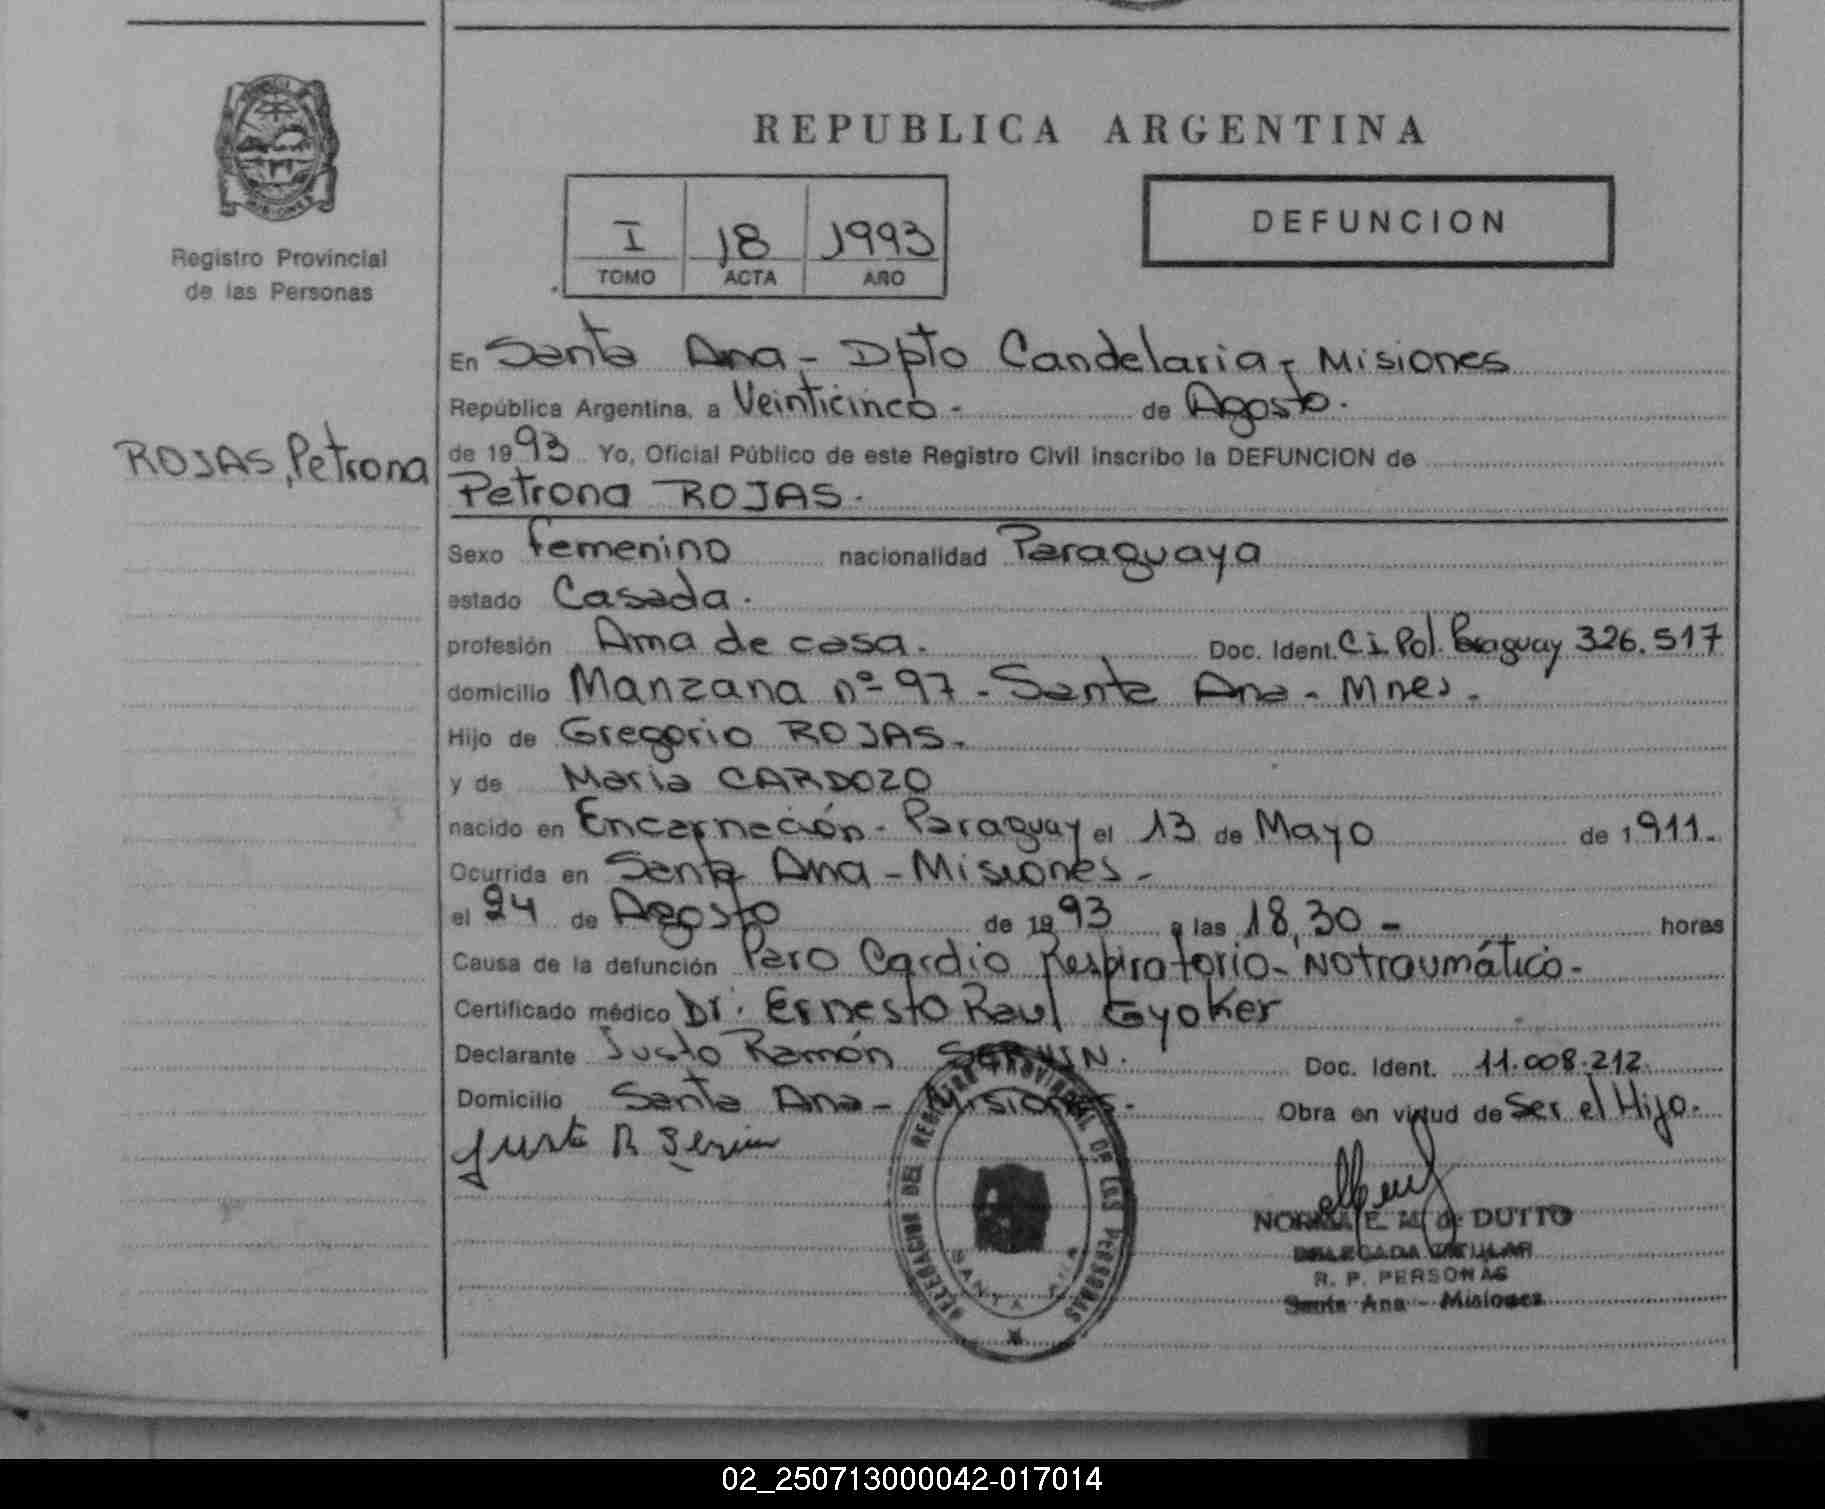 PROVINCIA DE
MISIONES
Registro Provincial
de las Personas
ROJAS, Petrona
REPUBLICA ARGENTINA
I 18 1993
TOMO ACTA AÑO
DEFUNCION
En Santa Ana - Dpto Candelaria - Misiones
República Argentina, a Veinticinco - de Agosto.
de 1993 Yo, Oficial Público de este Registro Civil inscribo la DEFUNCION de
Petrona ROJAS.
Sexo femenino nacionalidad Paraguaya
estado Casada.
profesión Ama de casa. Doc. Ident. C.I. Pol. Paraguay 326.517
domicilio Manzana nº 97 - Santa Ana - Mnes.
Hijo de Gregorio ROJAS.
y de Maria CARDOZO
nacido en Encarnación - Paraguay el 13 de Mayo de 1911.
Ocurrida en Santa Ana - Misiones -
el 24 de Agosto de 1993 a las 18,30 - horas
Causa de la defunción Paro Cardio Respiratorio - No traumático -
Certificado médico Dr. Ernesto Raul Gyoker
Declarante Justo Ramón SERVIN. Doc. Ident. 11.008.212.
Domicilio Santa Ana - Misiones - Obra en virtud de Ser el Hijo.
Justo R Servin
DELEGACION DEL REGISTRO PROVINCIAL DE LAS PERSONAS
SANTA ANA
NORMA E. M. de DUTTO
DELEGADA TITULAR
R. P. PERSONAS
Santa Ana - Misiones
02_250713000042-017014